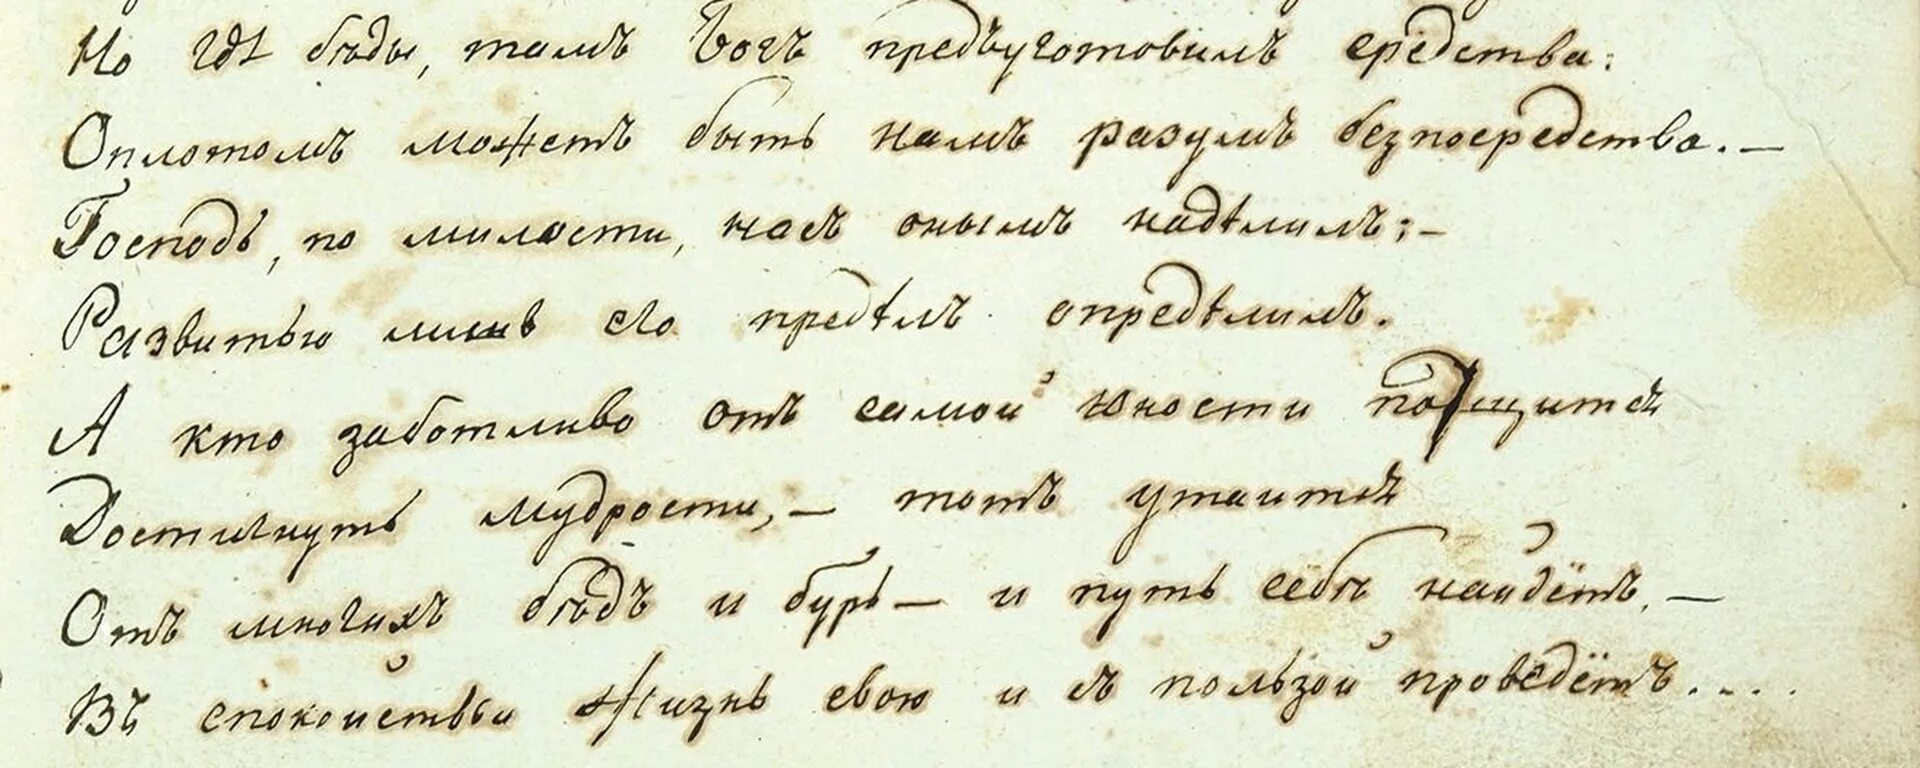 Но гдѣ бѣды, тамъ Богъ предъуготовилъ средства:
Оплотомъ можетъ быть намъ разумъ безпосредства. —
Господь, по милости, насъ онымъ надѣлилъ; —
Развитью лишь его предѣлъ опредѣлилъ.
А кто заботливо отъ самой юности потщится
Достигнуть мудрости, — тотъ утаится
Отъ многихъ бѣдъ и бурь — и путь себѣ найдётъ, —
Въ спокойствьи жизнь свою и съ пользой проведётъ....